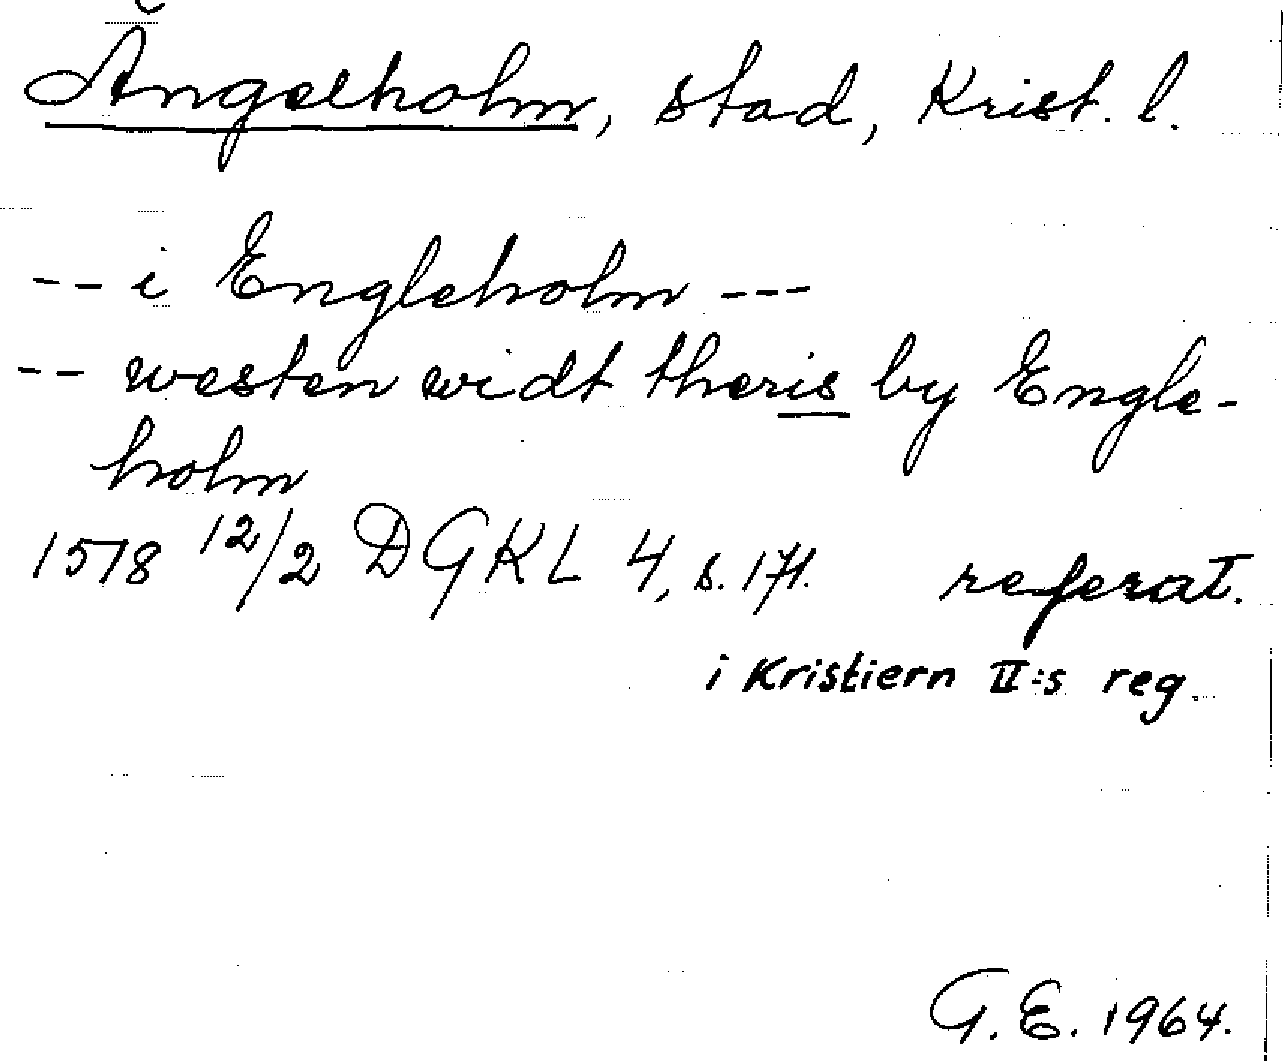 Ängelholm, stad, Krist. l.
-- i Engleholm ---
-- westen widt theris by Engle-
holm
1578 12/2 DGKL 4, s. 171. referat.
i Kristiern II:s reg.
G.E. 1964.